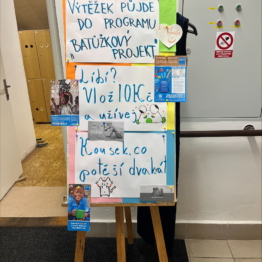 VÝTĚŽEK PŮJDE
DO PROGRAMU
BATŮŽKOVÝ
PROJEKT
Líbí?
Vlož 10Kč
a užívej
Kousek, co
potěší dvakrát